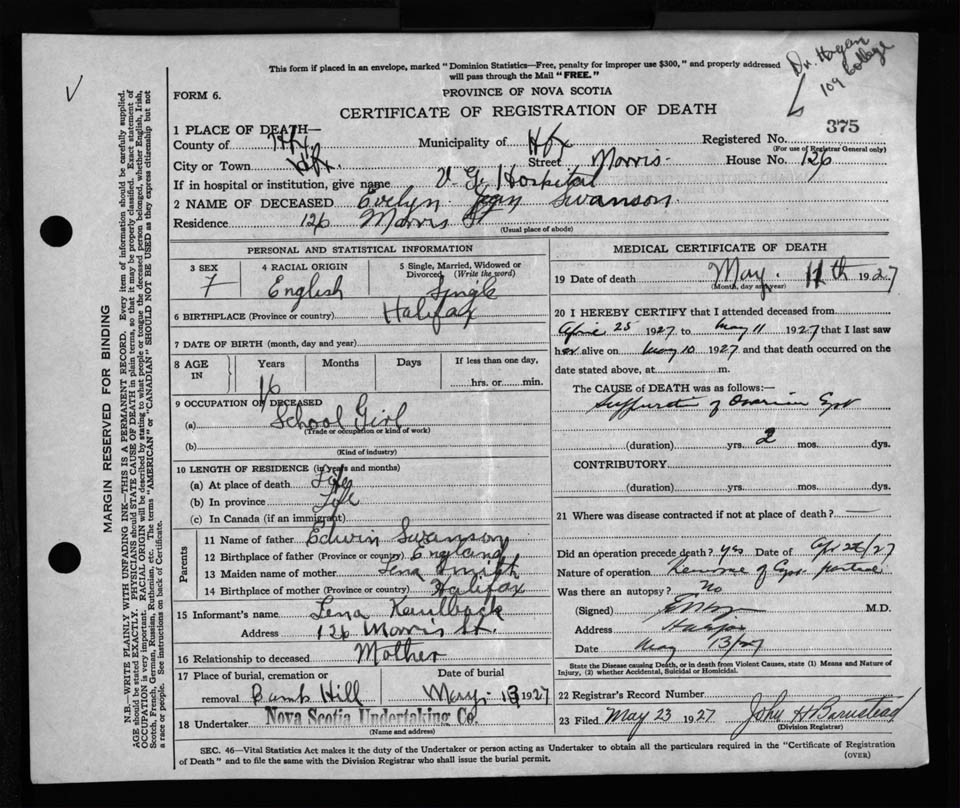 Dr. Hagan
109 College
This form if placed in an envelope, marked "Dominion Statistics—Free, penalty for improper use $300," and properly addressed
will pass through the Mail "FREE."
FORM 6.
PROVINCE OF NOVA SCOTIA
CERTIFICATE OF REGISTRATION OF DEATH
375
1 PLACE OF DEATH—
County of Hfx Municipality of Hfx Registered No.
(For use of Registrar General only)
City or Town Hfx. Street Morris House No. 126
If in hospital or institution, give name V. G. Hospital
2 NAME OF DECEASED Evelyn Jean Swanson
Residence 126 Morris St
(Usual place of abode)
PERSONAL AND STATISTICAL INFORMATION
3 SEX 4 RACIAL ORIGIN 5 Single, Married, Widowed or
Divorced (Write the word)
F English Single
6 BIRTHPLACE (Province or country) Halifax
7 DATE OF BIRTH (month, day and year)
8 AGE IN Years Months Days If less than one day,
16 hrs. or min.
9 OCCUPATION OF DECEASED
(a) School Girl
(Trade or occupation or kind of work)
(b)
(Kind of industry)
10 LENGTH OF RESIDENCE (in years and months)
(a) At place of death Life
(b) In province Life
(c) In Canada (if an immigrant)
Parents
11 Name of father Edwin Swanson
12 Birthplace of father (Province or country) England
13 Maiden name of mother Lena Smith
14 Birthplace of mother (Province or country) Halifax
15 Informant's name Lena Kaulback
Address 126 Morris St.
16 Relationship to deceased Mother
17 Place of burial, cremation or Date of burial
removal Hill May 13 1927
18 Undertaker Nova Scotia Undertaking Co.
(Name and address)
MEDICAL CERTIFICATE OF DEATH
19 Date of death May 11th 1927
(Month, day and year)
20 I HEREBY CERTIFY that I attended deceased from
April 25 1927 to May 11 1927 that I last saw
her alive on May 10 1927 and that death occurred on the
date stated above, at m.
The CAUSE of DEATH was as follows:—
of Ovarian Cyst
(duration) yrs. 2 mos. dys.
CONTRIBUTORY
(duration) yrs. mos. dys.
21 Where was disease contracted if not at place of death? —
Did an operation precede death? yes Date of
Nature of operation of Cyst
Was there an autopsy? No
(Signed) M.D.
Address Halifax
Date May 13/27
State the Disease causing Death, or in death from Violent Causes, state (1) Means and Nature of
Injury, (2) whether Accidental, Suicidal or Homicidal.
22 Registrar's Record Number
23 Filed May 23 1927 John H Barnstead
(Division Registrar)
SEC. 46—Vital Statistics Act makes it the duty of the Undertaker or person acting as Undertaker to obtain all the particulars required in the "Certificate of Registration
of Death" and to file the same with the Division Registrar who shall issue the burial permit.
(OVER)
MARGIN RESERVED FOR BINDING
N.B.—WRITE PLAINLY WITH UNFADING INK—THIS IS A PERMANENT RECORD. Every item of information should be carefully supplied.
AGE should be stated EXACTLY. PHYSICIANS should STATE CAUSE OF DEATH in plain terms, so that it may be properly classified. Exact statement of
OCCUPATION is very important. RACIAL ORIGIN will be described by stating to what people or tongue the deceased person belonged, whether English, Irish,
Scotch, French, German, Russian, Ruthenian, etc. The terms "AMERICAN" or "CANADIAN" SHOULD NOT BE USED as they express citizenship but not
a race or people. See instructions on back of Certificate.